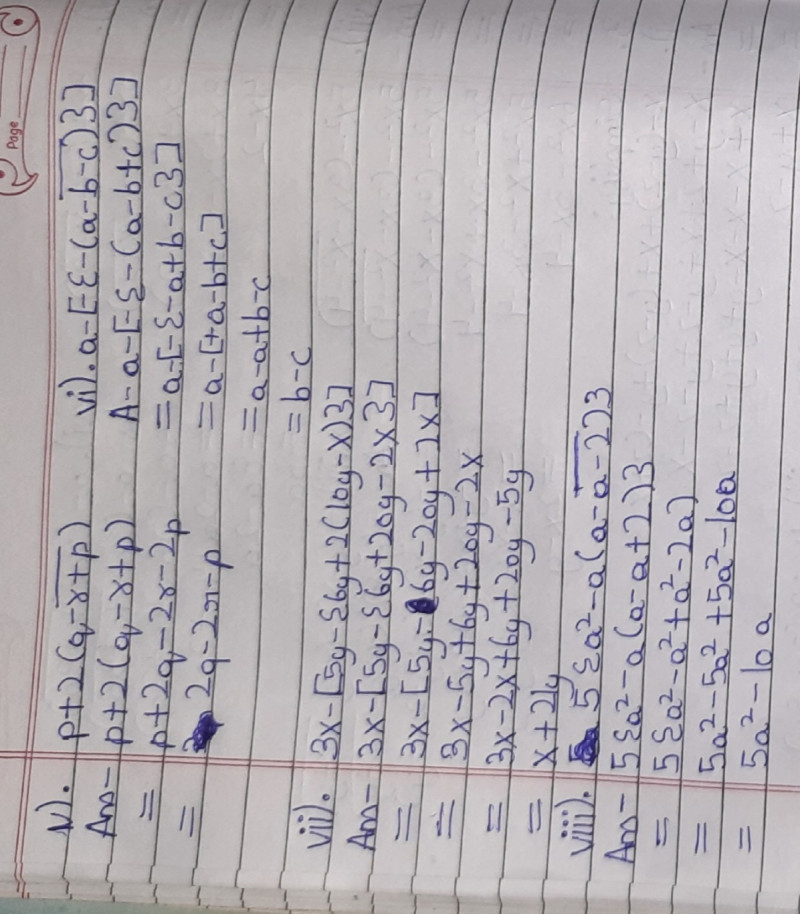 Page
v). p+2(q-r+p)
Ans- p+2(q-r+p)
= p+2q-2r-2p
= 2q-2r-p
vi). a-[-{-(a-b-c)}]
A- a-[-{-(a-b+c)}]
= a-[-{-a+b-c}]
= a-[+a-b+c]
= a-a+b-c
= b-c
vii). 3x-[5y-{6y+2(10y-x)}]
Ans- 3x-[5y-{6y+20y-2x}]
= 3x-[5y-6y-20y+2x]
= 3x-5y+6y+20y-2x
= 3x-2x+6y+20y-5y
= x+21y
viii). 5{a²-a(a-a-2)}
Ans- 5{a²-a(a-a+2)}
= 5{a²-a²+a²-2a)
= 5a²-5a²+5a²-10a
= 5a²-10a